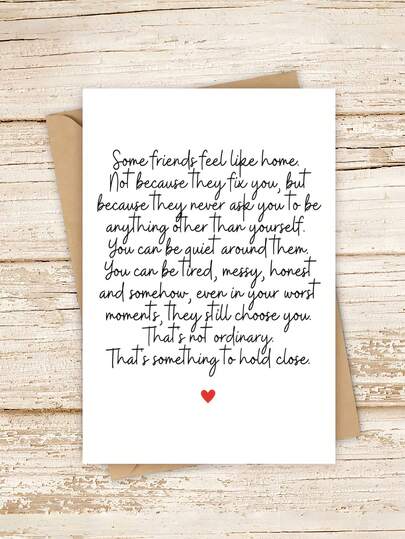 Some friends feel like home.
Not because they fix you, but
because they never ask you to be
anything other than yourself.
You can be quiet around them.
You can be tired, messy, honest
and somehow, even in your worst
moments, they still choose you.
That's not ordinary.
That's something to hold close.